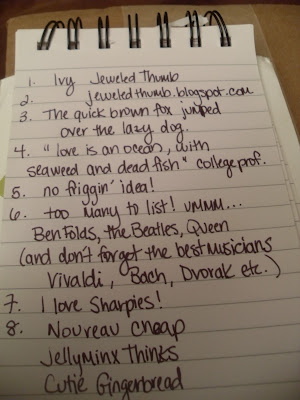 1. Ivy Jeweled Thumb
2. jeweledthumb.blogspot.com
3. The quick brown fox jumped
over the lazy dog.
4. "love is an ocean, with
seaweed and dead fish" college prof.
5. no friggin' idea!
6. too many to list! ummm...
Ben Folds, the Beatles, Queen
(and don't forget the best musicians
Vivaldi, Bach, Dvorak etc.)
7. I love Sharpies!
8. Nouveau Cheap
JellyMinx Thinks
Cutie Gingerbread